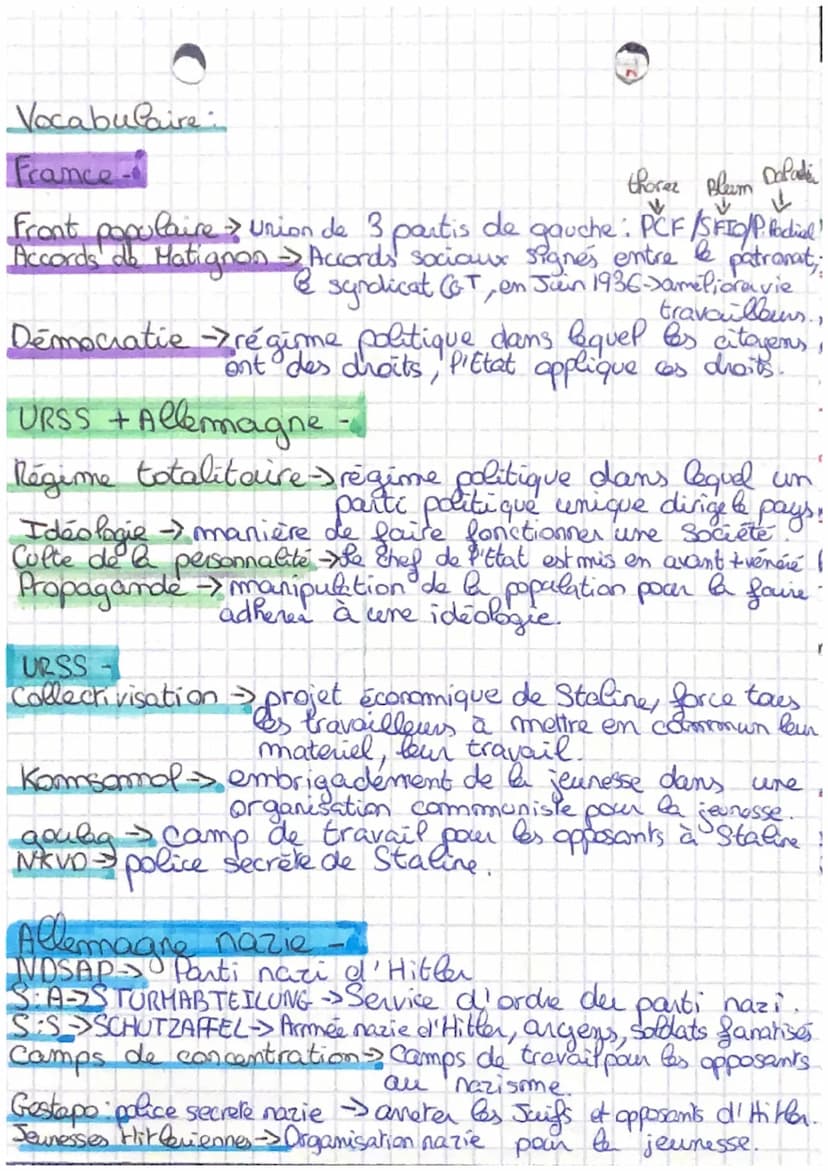 Vocabulaire:
France -
thorez Blum Daladier
Front populaire → Union de 3 partis de gauche : PCF/SFIO/P. Radical
Accords de Matignon → Accords sociaux signés entre le patronat,
le syndicat CGT, en Juin 1936 → améliora vie
travailleurs.
Démocratie → régime politique dans lequel les citoyens
ont des droits, l'Etat applique ces droits.
URSS + Allemagne -
Régime totalitaire → régime politique dans lequel un
parti politique unique dirige le pays.
Idéologie → manière de faire fonctionner une société.
Culte de la personnalité → Le chef de l'Etat est mis en avant + vénéré
Propagande → manipulation de la population pour la faire
adherer à une idéologie.
URSS -
Collectivisation → projet économique de Staline, force tous
les travailleurs à mettre en commun leur
materiel, leur travail.
Komsomol → embrigadement de la jeunesse dans une
organisation communiste pour la jeunesse.
goulag → camp de travail pour les opposants à Staline
NKVD → police secrète de Staline.
Allemagne nazie -
NDSAP → Parti nazi d'Hitler
S:A → STURMABTEILUNG → Service d'ordre du parti nazi.
S:S → SCHUTZAFFEL → Armée nazie d'Hitler, aryens, soldats fanatisés
Camps de concentration → Camps de travail pour les opposants
au nazisme.
Gestapo : police secrete nazie → arreter les Juifs et opposants d'Hitler.
Jeunesses Hitleriennes → Organisation nazie pour la jeunesse.